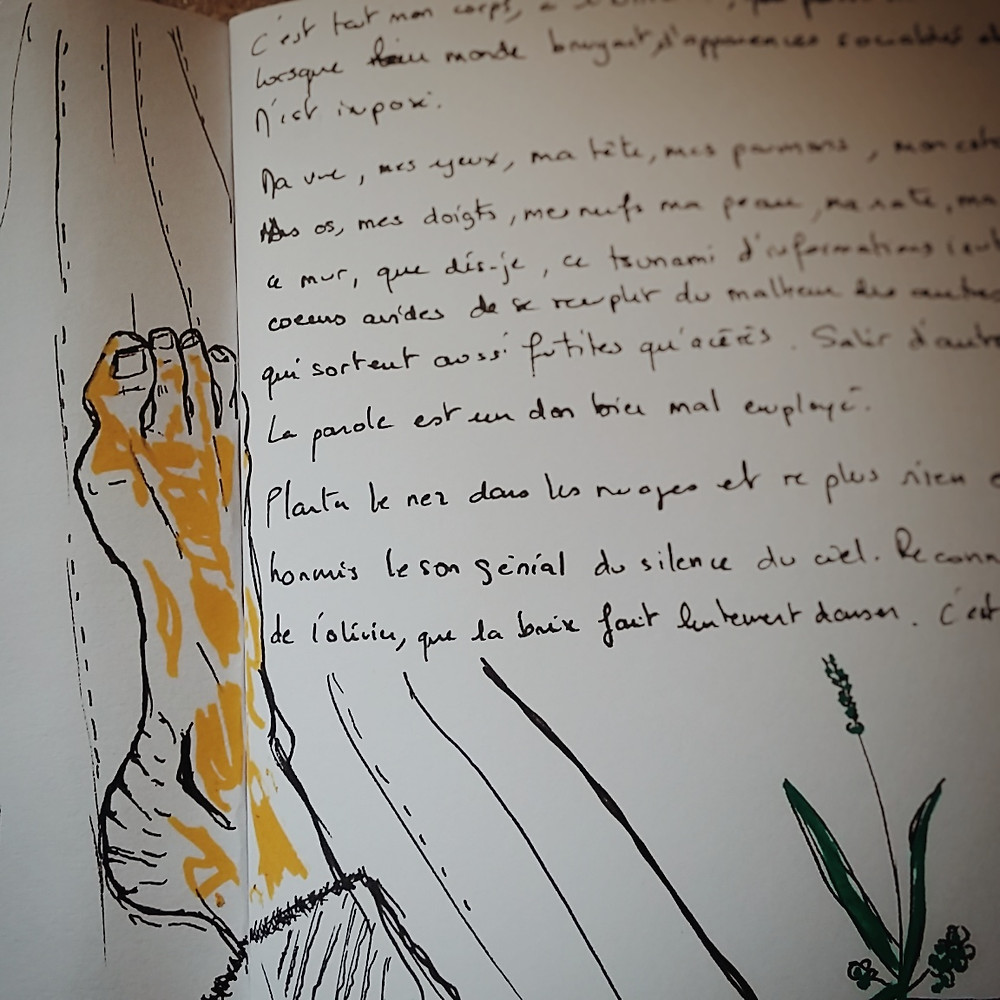 c'est tout mon corps,
lorsque monde bruyant, d'apparences sociables et
n'est imposé.
Ma vue, mes yeux, ma tête, mes poumons, mon
Mes os, mes doigts, mes nerfs ma peau, ma rate, ma
ce mur, que dis-je, ce tsunami d'informations
coeurs avides de se remplir du malheur des autres
qui sortent aussi futiles qu'acérés. Salir d'autre
La parole est un don bien mal employé.
Planter le nez dans les nuages et ne plus rien
hormis le son génial du silence du ciel. Reconn
de l'olivier, que la brise fait lentement danser. C'est